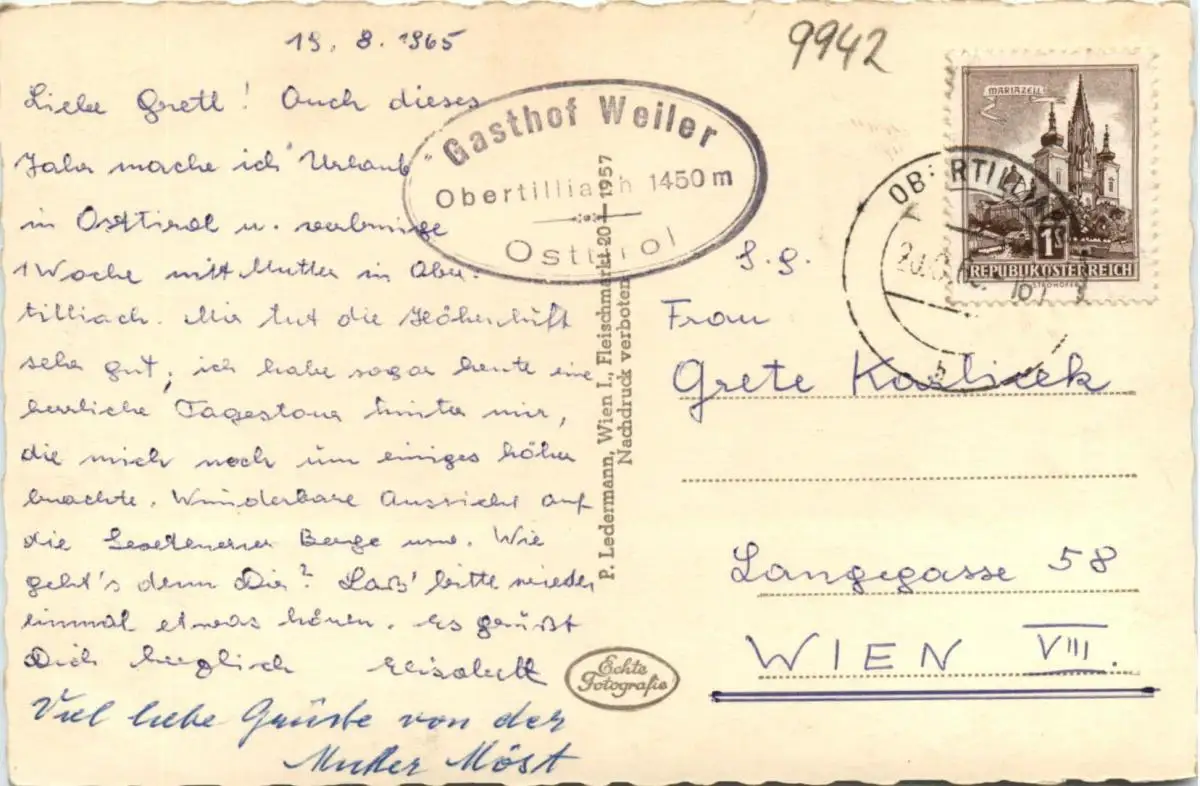 19. 8. 1965
Liebe Gretl! Auch dieses
Jahr mache ich Urlaub
in Osttirol u. verbringe
1 Woche mit Mutter in Ober-
tilliach. Mir tut die Höhenluft
sehr gut, ich habe sogar heute eine
herrliche Tagestour hinter mir,
die mich noch um einiges höher
brachte. Wunderbare Aussicht auf
die Berge usw. Wie
geht's denn Dir? Laß' bitte wieder
einmal etwas hören. Es grüßt
Dich herzlich Elisabeth
Viel liebe Grüße von der
Mutter Möst
Gasthof Weiler
Obertilliach 1450 m
Osttirol
P. Ledermann, Wien I., Fleischmarkt 20 – 1957
Nachdruck verboten
Echte
Fotografie
9942
MARIAZELL
1S
REPUBLIK ÖSTERREICH
OBERTILLIACH
b
Frau
Grete Karlicek
Langegasse 58
WIEN VIII.